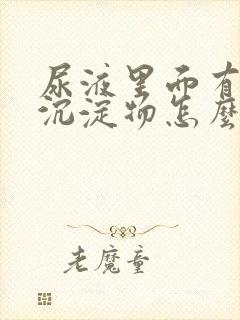 尿液里面有
沉淀物怎麽
老魔童